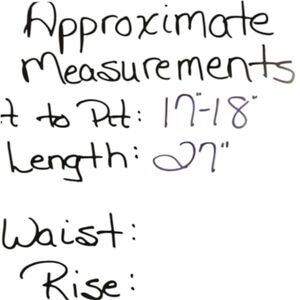 Approximate
Measurements
t to Pit: 17"-18"
Length: 27"
Waist:
Rise: